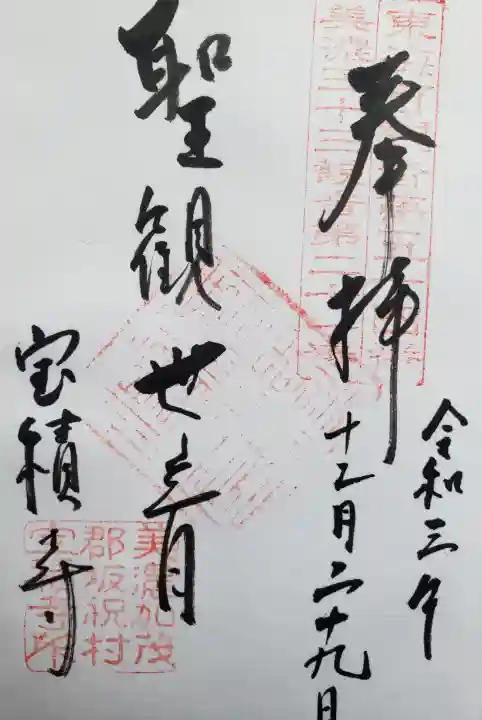 奉拝
令和三年
十二月二十九日
美濃三十三観音第二十
聖観世音
宝積寺
美濃加茂
郡坂祝村
宝積寺印